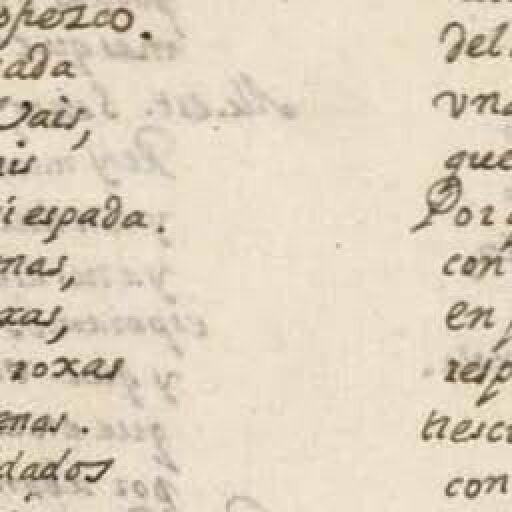 ada
Vais,
mis
i espada.
mas,
xas,
roxas
enas.
dados
del
vna
que
Por
con
en
resp
con